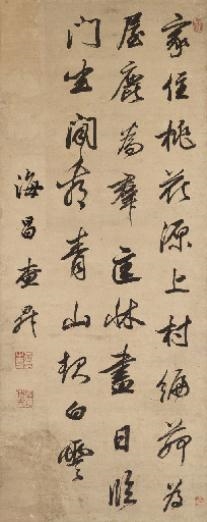 家住桃花源上村編茆為
屋鹿為群匡牀盡日臨
門坐閒看青山報白雲
海昌查昇